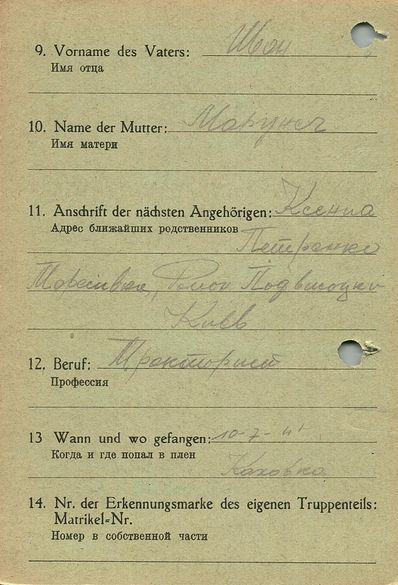 9. Vorname des Vaters: Иван
Имя отца
10. Name der Mutter:
Имя матери
11. Anschrift der nächsten Angehörigen: Ксениа
Адрес ближайших родственников Петренко
Киев
12. Beruf: Тракторист
Профессия
13 Wann und wo gefangen: 10-7-41
Когда и где попал в плен Каховка
14. Nr. der Erkennungsmarke des eigenen Truppenteils:
Matrikel-Nr.
Номер в собственной части